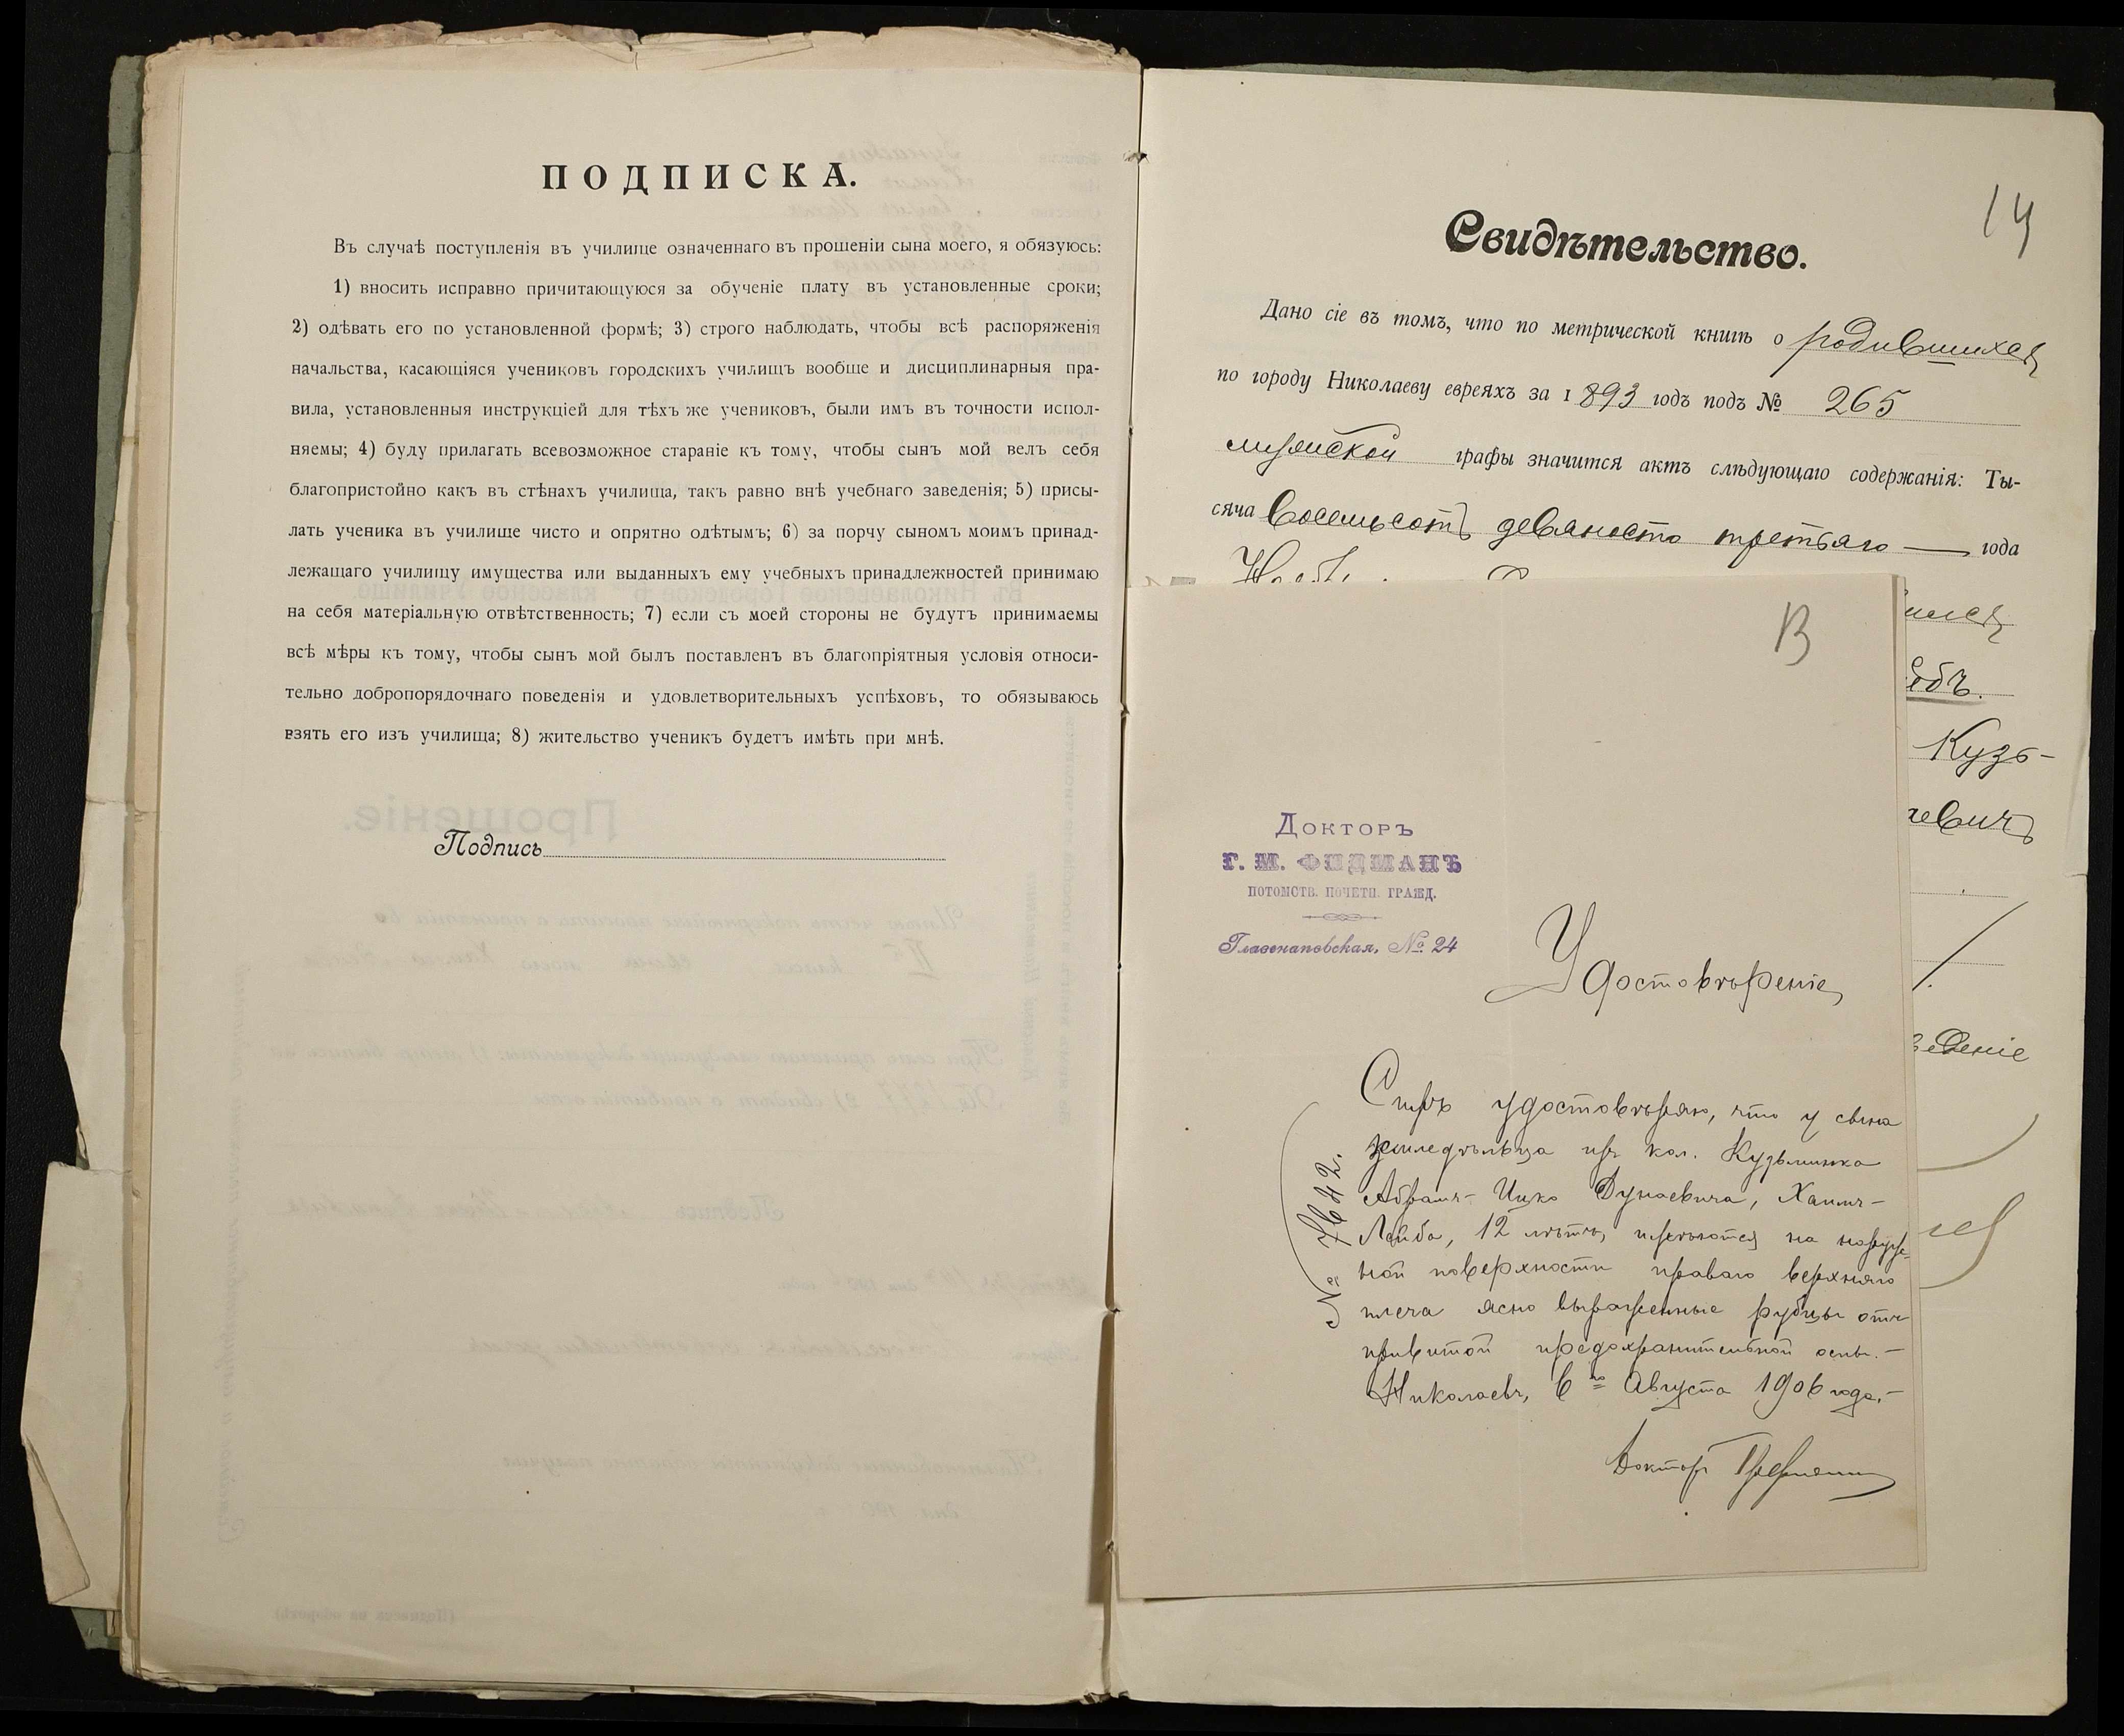 ПОДПИСКА.
Въ случаѣ поступленія въ училище означеннаго въ прошеніи сына моего, я обязуюсь:
1) вносить исправно причитающуюся за обученіе плату въ установленные сроки;
2) одѣвать его по установленной формѣ; 3) строго наблюдать, чтобы всѣ распоряженія
начальства, касающіяся учениковъ городскихъ училищъ вообще и дисциплинарныя пра-
вила, установленныя инструкціей для тѣхъ же учениковъ, были имъ въ точности испол-
няемы; 4) буду прилагать всевозможное стараніе къ тому, чтобы сынъ мой велъ себя
благопристойно какъ въ стѣнахъ училища, такъ равно внѣ учебнаго заведенія; 5) присы-
лать ученика въ училище чисто и опрятно одѣтымъ; 6) за порчу сыномъ моимъ принад-
лежащаго училищу имущества или выданныхъ ему учебныхъ принадлежностей принимаю
на себя матеріальную отвѣтственность; 7) если съ моей стороны не будутъ принимаемы
всѣ мѣры къ тому, чтобы сынъ мой былъ поставленъ въ благопріятныя условія относи-
тельно добропорядочнаго поведенія и удовлетворительныхъ успѣховъ, то обязываюсь
взять его изъ училища; 8) жительство ученикъ будетъ имѣть при мнѣ.
Подпись
14
Свидѣтельство.
Дано сіе въ томъ, что по метрической книгѣ о родившихся
по городу Николаеву евреяхъ за 1893 годъ подъ № 265
мужской графы значится актъ слѣдующаго содержанія: Ты-
сяча восемьсотъ девяносто третьяго года
Кузь-
13
Докторъ
Г. М. ФИДМАНЪ
ПОТОМСТВ. ПОЧЕТН. ГРАЖД.
Глазенаповская, № 24
Удостовѣреніе
№ 7642.
Симъ удостовѣряю, что у сына
земледѣльца изъ кол. Кузьминка
Абрама-Ицко Дунаевича, Хаимъ-
Лейба, 12 лѣтъ, имѣются на наруж-
ной поверхности праваго верхняго
плеча ясно выраженные рубцы отъ
привитой предохранительной оспы.-
Николаевъ, 6го Августа 1906 года.-
Докторъ